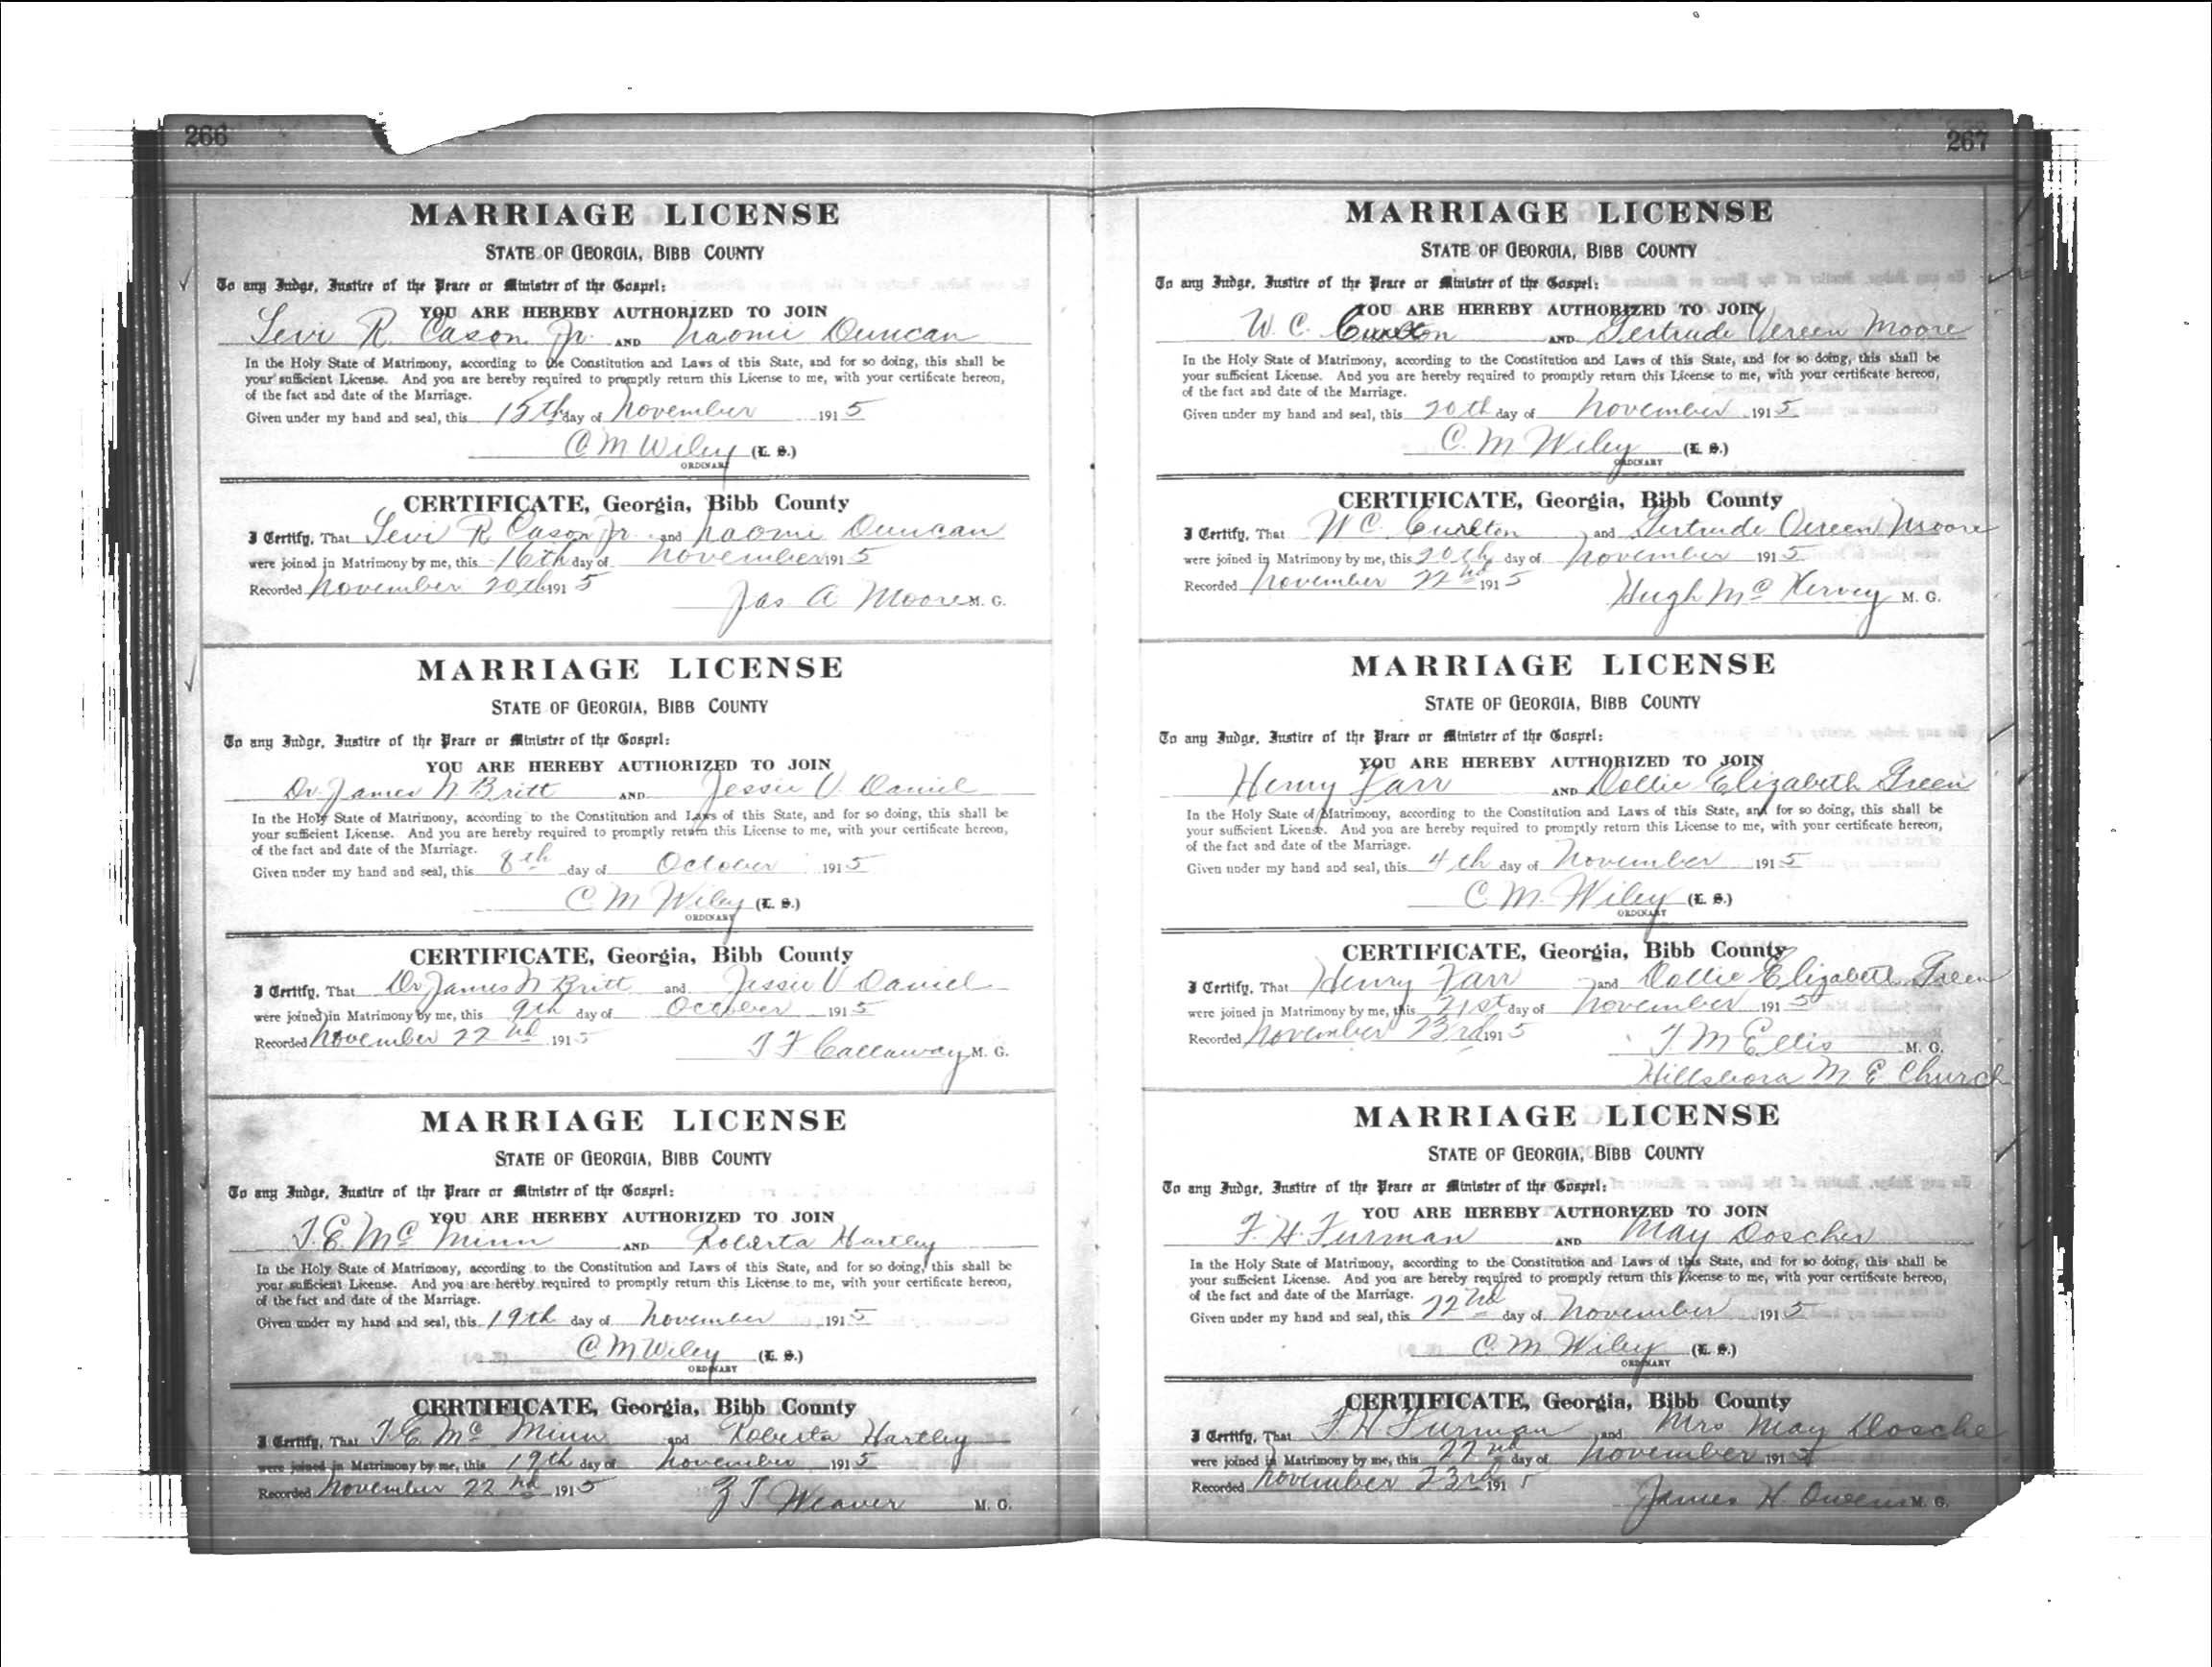 266
MARRIAGE LICENSE
STATE OF GEORGIA, BIBB COUNTY
To any Judge, Justice of the Peace or Minister of the Gospel:
YOU ARE HEREBY AUTHORIZED TO JOIN
Levi R. Cason Jr. AND Naomi Duncan
In the Holy State of Matrimony, according to the Constitution and Laws of this State, and for so doing, this shall be
your sufficient License. And you are hereby required to promptly return this License to me, with your certificate hereon,
of the fact and date of the Marriage.
Given under my hand and seal, this 15th day of November 1915
C M Wiley (L. S.)
ORDINARY
CERTIFICATE, Georgia, Bibb County
I Certify, That Levi R Cason Jr. and Naomi Duncan
were joined in Matrimony by me, this 16th day of November 1915
Recorded November 20th 1915
Jas A Moore M. G.
MARRIAGE LICENSE
STATE OF GEORGIA, BIBB COUNTY
To any Judge, Justice of the Peace or Minister of the Gospel:
YOU ARE HEREBY AUTHORIZED TO JOIN
Dr. James N Britt AND Jessie V. Daniel
In the Holy State of Matrimony, according to the Constitution and Laws of this State, and for so doing, this shall be
your sufficient License. And you are hereby required to promptly return this License to me, with your certificate hereon,
of the fact and date of the Marriage.
Given under my hand and seal, this 8th day of October 1915
C M Wiley (L. S.)
ORDINARY
CERTIFICATE, Georgia, Bibb County
I Certify, That Dr James N Britt and Jessie V Daniel
were joined in Matrimony by me, this 9th day of October 1915
Recorded November 22nd 1915
T F Callaway M. G.
MARRIAGE LICENSE
STATE OF GEORGIA, BIBB COUNTY
To any Judge, Justice of the Peace or Minister of the Gospel:
YOU ARE HEREBY AUTHORIZED TO JOIN
T. E. Mc Minn AND Roberta Hartley
In the Holy State of Matrimony, according to the Constitution and Laws of this State, and for so doing, this shall be
your sufficient License. And you are hereby required to promptly return this License to me, with your certificate hereon,
of the fact and date of the Marriage.
Given under my hand and seal, this 19th day of November 1915
C M Wiley (L. S.)
ORDINARY
CERTIFICATE, Georgia, Bibb County
I Certify, That T E Mc Minn and Roberta Hartley
were joined in Matrimony by me, this 19th day of November 1915
Recorded November 22nd 1915
Z T Weaver M. G.
267
MARRIAGE LICENSE
STATE OF GEORGIA, BIBB COUNTY
To any Judge, Justice of the Peace or Minister of the Gospel:
YOU ARE HEREBY AUTHORIZED TO JOIN
W. C. Curlton AND Gertrude Vereen Moore
In the Holy State of Matrimony, according to the Constitution and Laws of this State, and for so doing, this shall be
your sufficient License. And you are hereby required to promptly return this License to me, with your certificate hereon,
of the fact and date of the Marriage.
Given under my hand and seal, this 20th day of November 1915
C. M Wiley (L. S.)
ORDINARY
CERTIFICATE, Georgia, Bibb County
I Certify, That W C. Curlton and Gertrude Vereen Moore
were joined in Matrimony by me, this 20th day of November 1915
Recorded November 22nd 1915
Hugh Mc Kervey M. G.
MARRIAGE LICENSE
STATE OF GEORGIA, BIBB COUNTY
To any Judge, Justice of the Peace or Minister of the Gospel:
YOU ARE HEREBY AUTHORIZED TO JOIN
Henry Farr AND Dollie Elizabeth Green
In the Holy State of Matrimony, according to the Constitution and Laws of this State, and for so doing, this shall be
your sufficient License. And you are hereby required to promptly return this License to me, with your certificate hereon,
of the fact and date of the Marriage.
Given under my hand and seal, this 4th day of November 1915
C M. Wiley (L. S.)
ORDINARY
CERTIFICATE, Georgia, Bibb County
I Certify, That Henry Farr and Dollie Elizabeth Green
were joined in Matrimony by me, this 21st day of November 1915
Recorded November 23rd 1915
T M Ellis M. G.
Hillsboro M. E Church
MARRIAGE LICENSE
STATE OF GEORGIA, BIBB COUNTY
To any Judge, Justice of the Peace or Minister of the Gospel:
YOU ARE HEREBY AUTHORIZED TO JOIN
F. H. Furman AND May Doscher
In the Holy State of Matrimony, according to the Constitution and Laws of this State, and for so doing, this shall be
your sufficient License. And you are hereby required to promptly return this License to me, with your certificate hereon,
of the fact and date of the Marriage.
Given under my hand and seal, this 22nd day of November 1915
C. M Wiley (L. S.)
ORDINARY
CERTIFICATE, Georgia, Bibb County
I Certify, That F H Furman and Mrs May Dosche
were joined in Matrimony by me, this 22nd day of November 1915
Recorded November 23rd 1915
James H. Owens M. G.